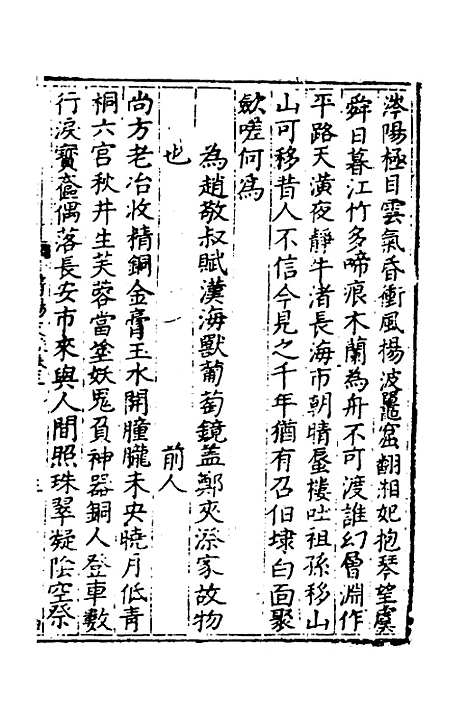 涔陽極目雲氣昏衝風揚波鼉窟翻湘妃抱琴望虞
舜日暮江竹多啼痕木蘭為舟不可渡誰幻層淵作
平路天潢夜靜牛渚長海市朝晴蜃樓吐祖孫移山
山可移昔人不信今見之千年猶有召伯埭白面聚
歛嗟何為
為趙敬叔賦漢海獸葡萄鏡蓋鄭夾漈家故物
也 前人
尚方老冶收精銅金膏玉水開朣朧未央曉月低青
桐六宮秋井生芙蓉當塗妖鬼負神器銅人登車數
行淚寶奩偶落長安市來與人間照珠翠凝陰空祭